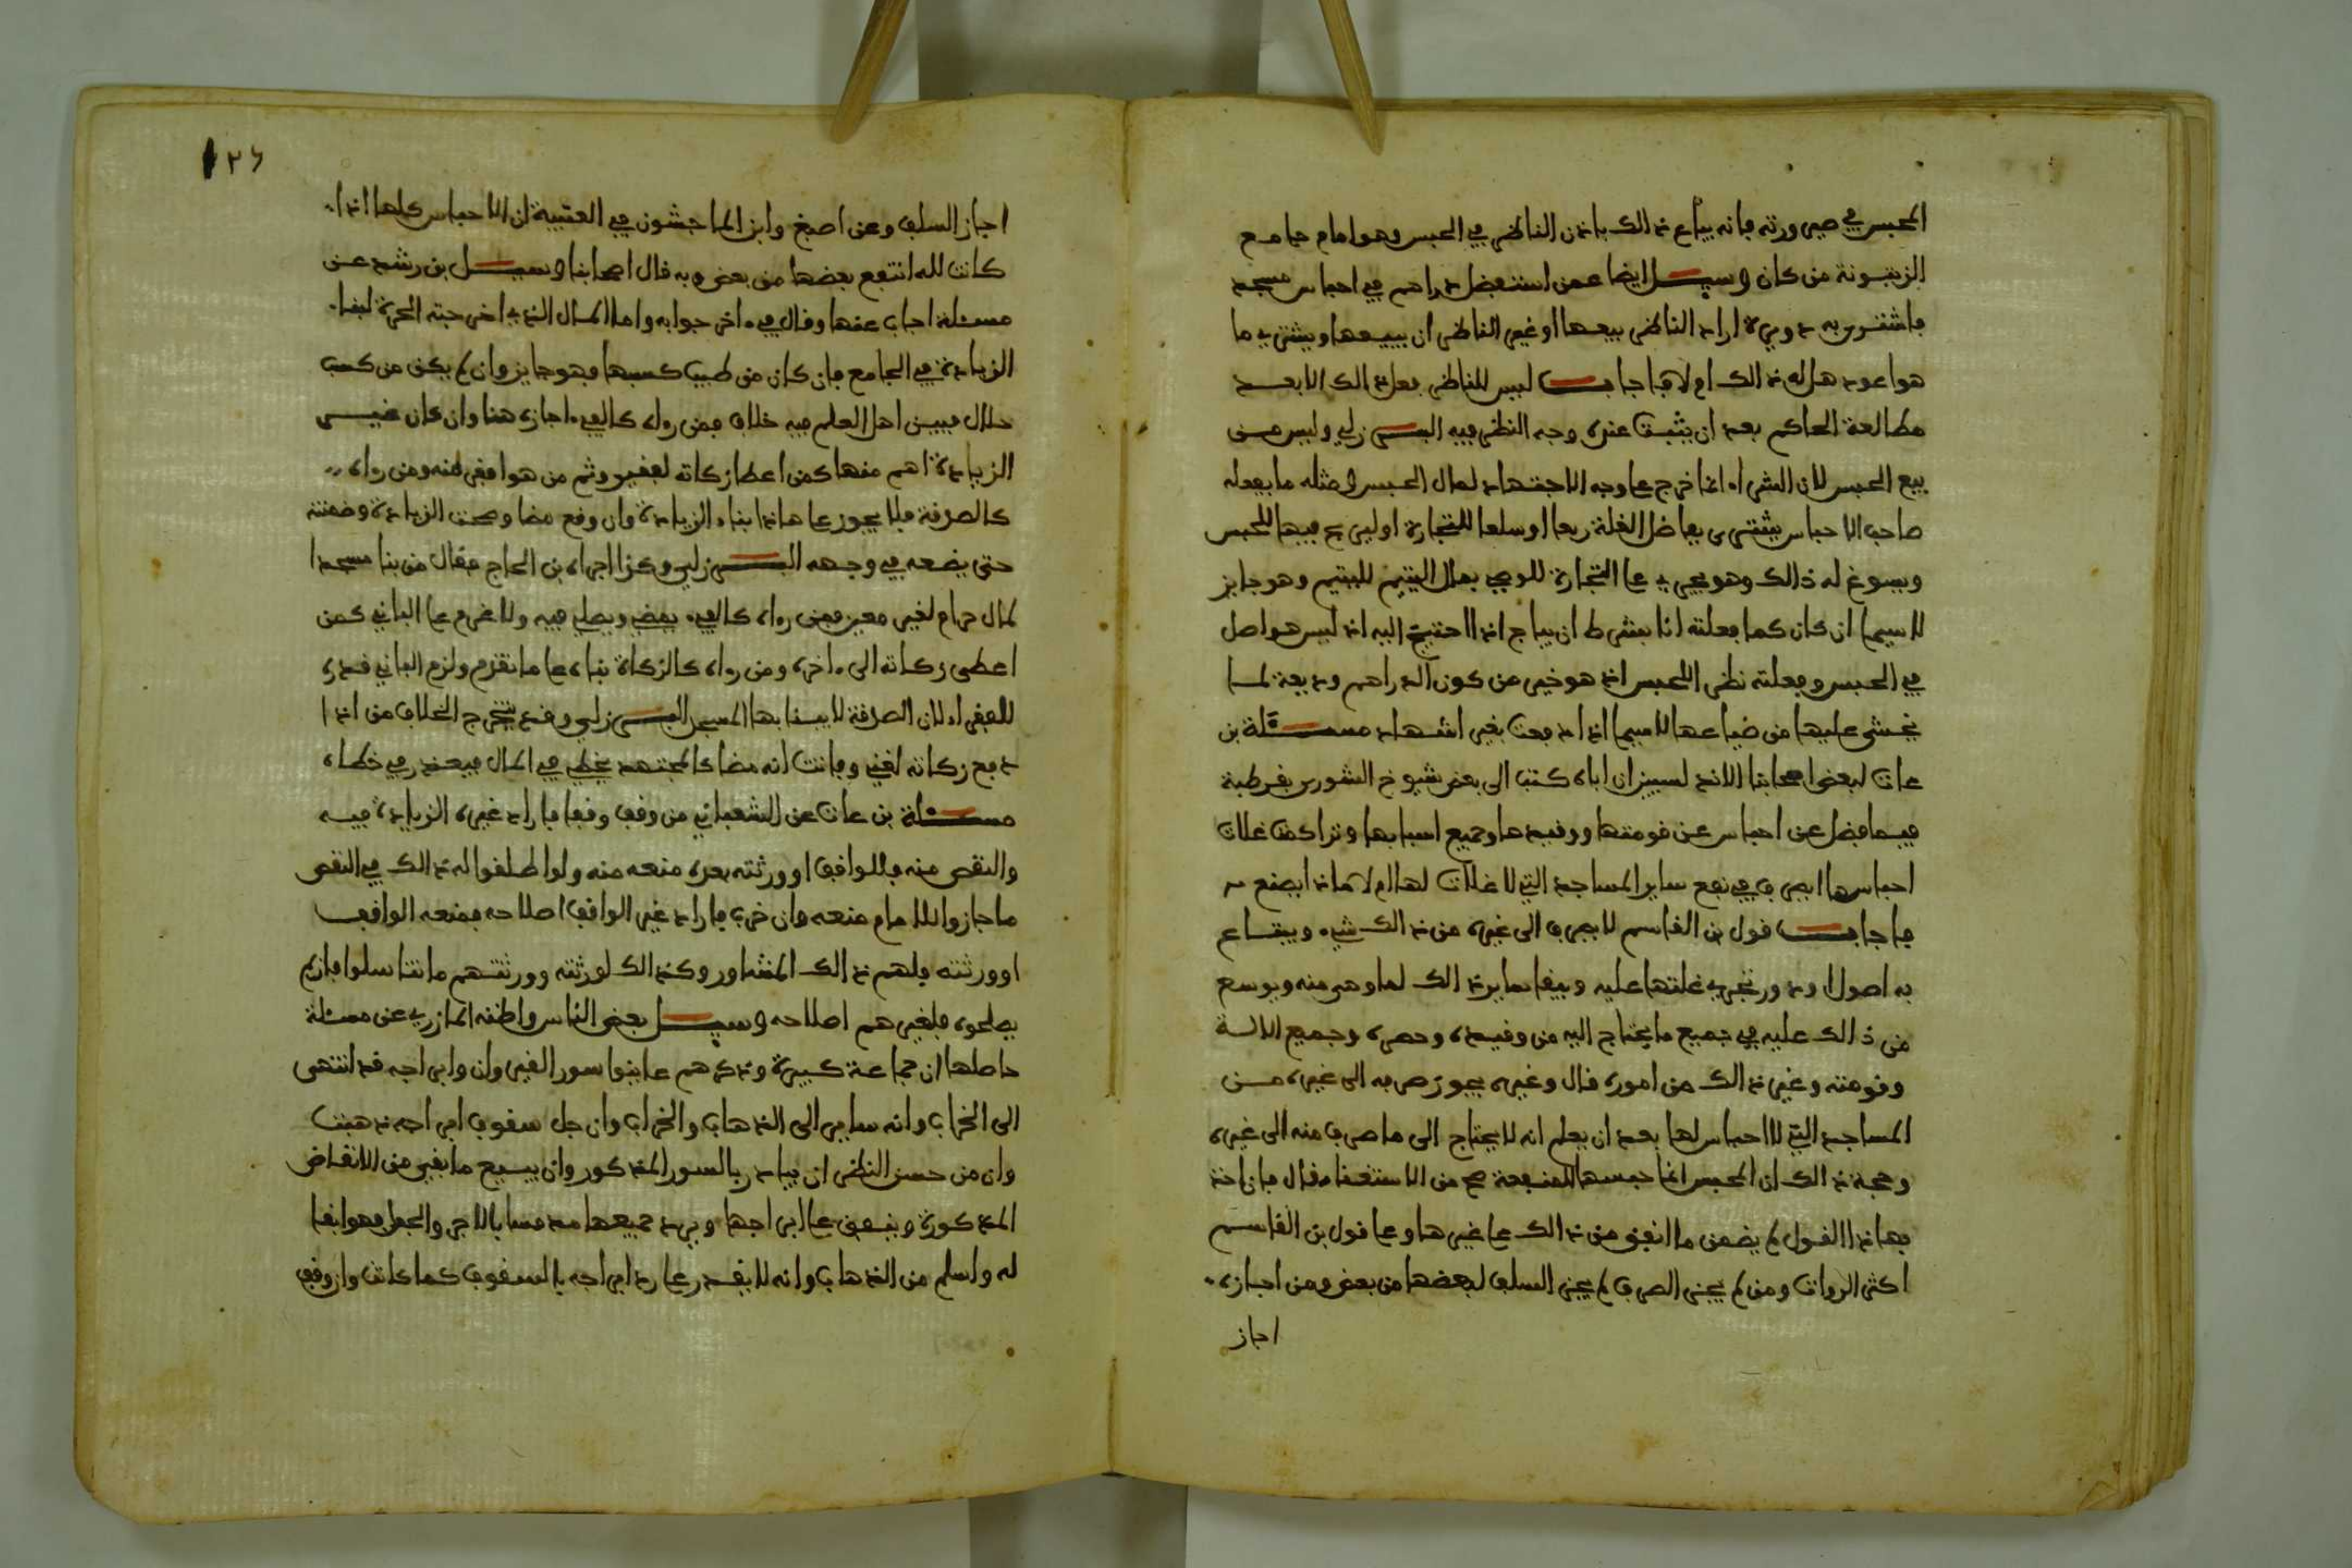 المحبس في صيرورته فانه يباع ذالك باذن الناظر في الحبس وهو امام جامع
الزيتونة من كان وسيل ايضا عمن استفضل دراهم في احباس مسجد
فاشترى به دويرة اراد الناظر بيعها او غير الناظر ان يبيعها ويشتري ما
هو اعود هل له ذالك ام لا فاجاب ليس للناظر فعل ذالك الا بعد
مطالعة الحاكم بعد ان يثبت عنده وجه النظر فيه البرزلي وليس من
بيع الحبس لان الشراء انما خرج على وجه الاجتهاد لمال الحبس ومثله ما يفعله
صاحب الاحباس يشتري بفاضل الغلة ربعا او سلعا للتجارة او ليربح فيها للحبس
ويسوغ له ذالك وهو يجري على التجارة للوصي بمال اليتيم لليتيم وهو جايز
لاسيما ان كان كما فعلته انا بشرط ان يباع اذا احتيج اليه اذ ليس هو اصل
في الحبس وفعلته نظر اللحبس اذ هو خير من كون الدراهم وديعة لما
يخشى عليها من ضياعها لاسيما اذا دفعت بغير اشهاد مسئلة بن
عات لبعض اصحابنا الاندلسيين ان اباه كتب الى بعض شيوخ الشورى بقرطبة
فيما فضل عن احباس عن قومتها ووقيدها وجميع اسبابها وتراكمت غلات
احباسها ايصرف في نفع ساير المساجد التي لا غلات لها ام لا فماذا يصنع به
فاجاب قول بن القاسم لا يصرف الى غيره من ذالك شيء ويبتاع
به اصول ودور تجري غلتها عليه ويبقا ساير ذالك لما وهى منه ويوسع
من ذالك عليه في جميع ما يحتاج اليه من وقيده وحصره وجميع الالة
وقومته وغير ذالك من اموره قال وغيره يجوز صرفه الى غيره من
المساجد التي لا احباس لها بعد ان يعلم انه لا يحتاج الى ما صرف منه الى غيره
وحجة ذالك ان المحبس انما حبسها للمنفعة مع من الاستغناء قال فان اخذ
بهاذا القول لم يضمن ما انفق من ذالك على غيرها وعلى قول بن القاسم
اكثر الرواة ومن لم يجز الصرف لم يجز السلف لبعضها من بعض ومن اجازه
اجاز
١٢٦
اجاز السلف وعن اصبغ وابن الماجشون في العتبية ان الاحباس كلها اذا
كانت لله انتفع بعضها من بعض وبه قال اصحابنا وسيل بن رشد عن
مسئلة اجاب عنها وقال في ءاخر جوابه واما المال الذي اخرجته الحرة لبناء
الزيادة في الجامع فان كان من طيب كسبها فهو جايز وان لم يكن من كسب
حلال فبين اهل العلم فيه خلاف فمن رواه كالفيء اجازه هنا وان كان غيره
الزيادة اهم منها كمن اعطا زكاته لفقير وثم من هو افقر منه ومن رواه
كالصدقة فلا يجوز على هاذا بناء الزيادة وان وقع مضا وصحت الزيادة وضمنته
حتى يضعه في وجهه البرزلي وكذا اجراه بن الحاج فقال من بنا مسجدا
لمال حرام لغير معين فمن رواه كالفيء يمضي ويصلى فيه ولا غرم على الباني كمن
اعطى زكاته الى ءاخره ومن رواه كالزكاة بناه على ما تقدم ولزم الباني قدره
للفقراء لان الصدقة لا يبنا بها المسجد البرزلي وقد يتخرج الخلاف من اذا
دفع زكاته لغني وفاتت انه مضا كالمجتهد يخطي في المال فيعذر في خطاه
مسئلة بن عات عن الشعباني من وقف وقفا فاراد غيره الزيادة فيه
والنقص منه فللواقف او ورثته بعده منعه منه ولو اطلقوا له ذالك في النقص
ما جاز وللامام منعه وان خرب فاراد غير الواقف اصلاحه فمنعه الواقف
او ورثته فلهم ذالك المشاور وكذالك لورثته وورثتهم ما تناسلوا فان لم
يصلحوه فلغيرهم اصلاحه وسيل بعض الناس واظنه المازري عن مسئلة
حاصلها ان جماعة كبيرة وذكرهم عاينوا سور القيروان وابراجه قد انتهى
الى الخراب وانه ساير الى الذهاب والخراب وان جل سقوف ابراجه ذهبت
وان من حسن النظر ان يبادر بالسور المذكور وان يبيع ما بقي من الانقاض
المذكورة وينفق على ابراجها ويرد جميعها مدمسا بالاجر والجعل فهو ابقا
له واسلم من الذهاب وانه لا يقدر على رد ابراجه بالسقوف كما كانت وان وقف